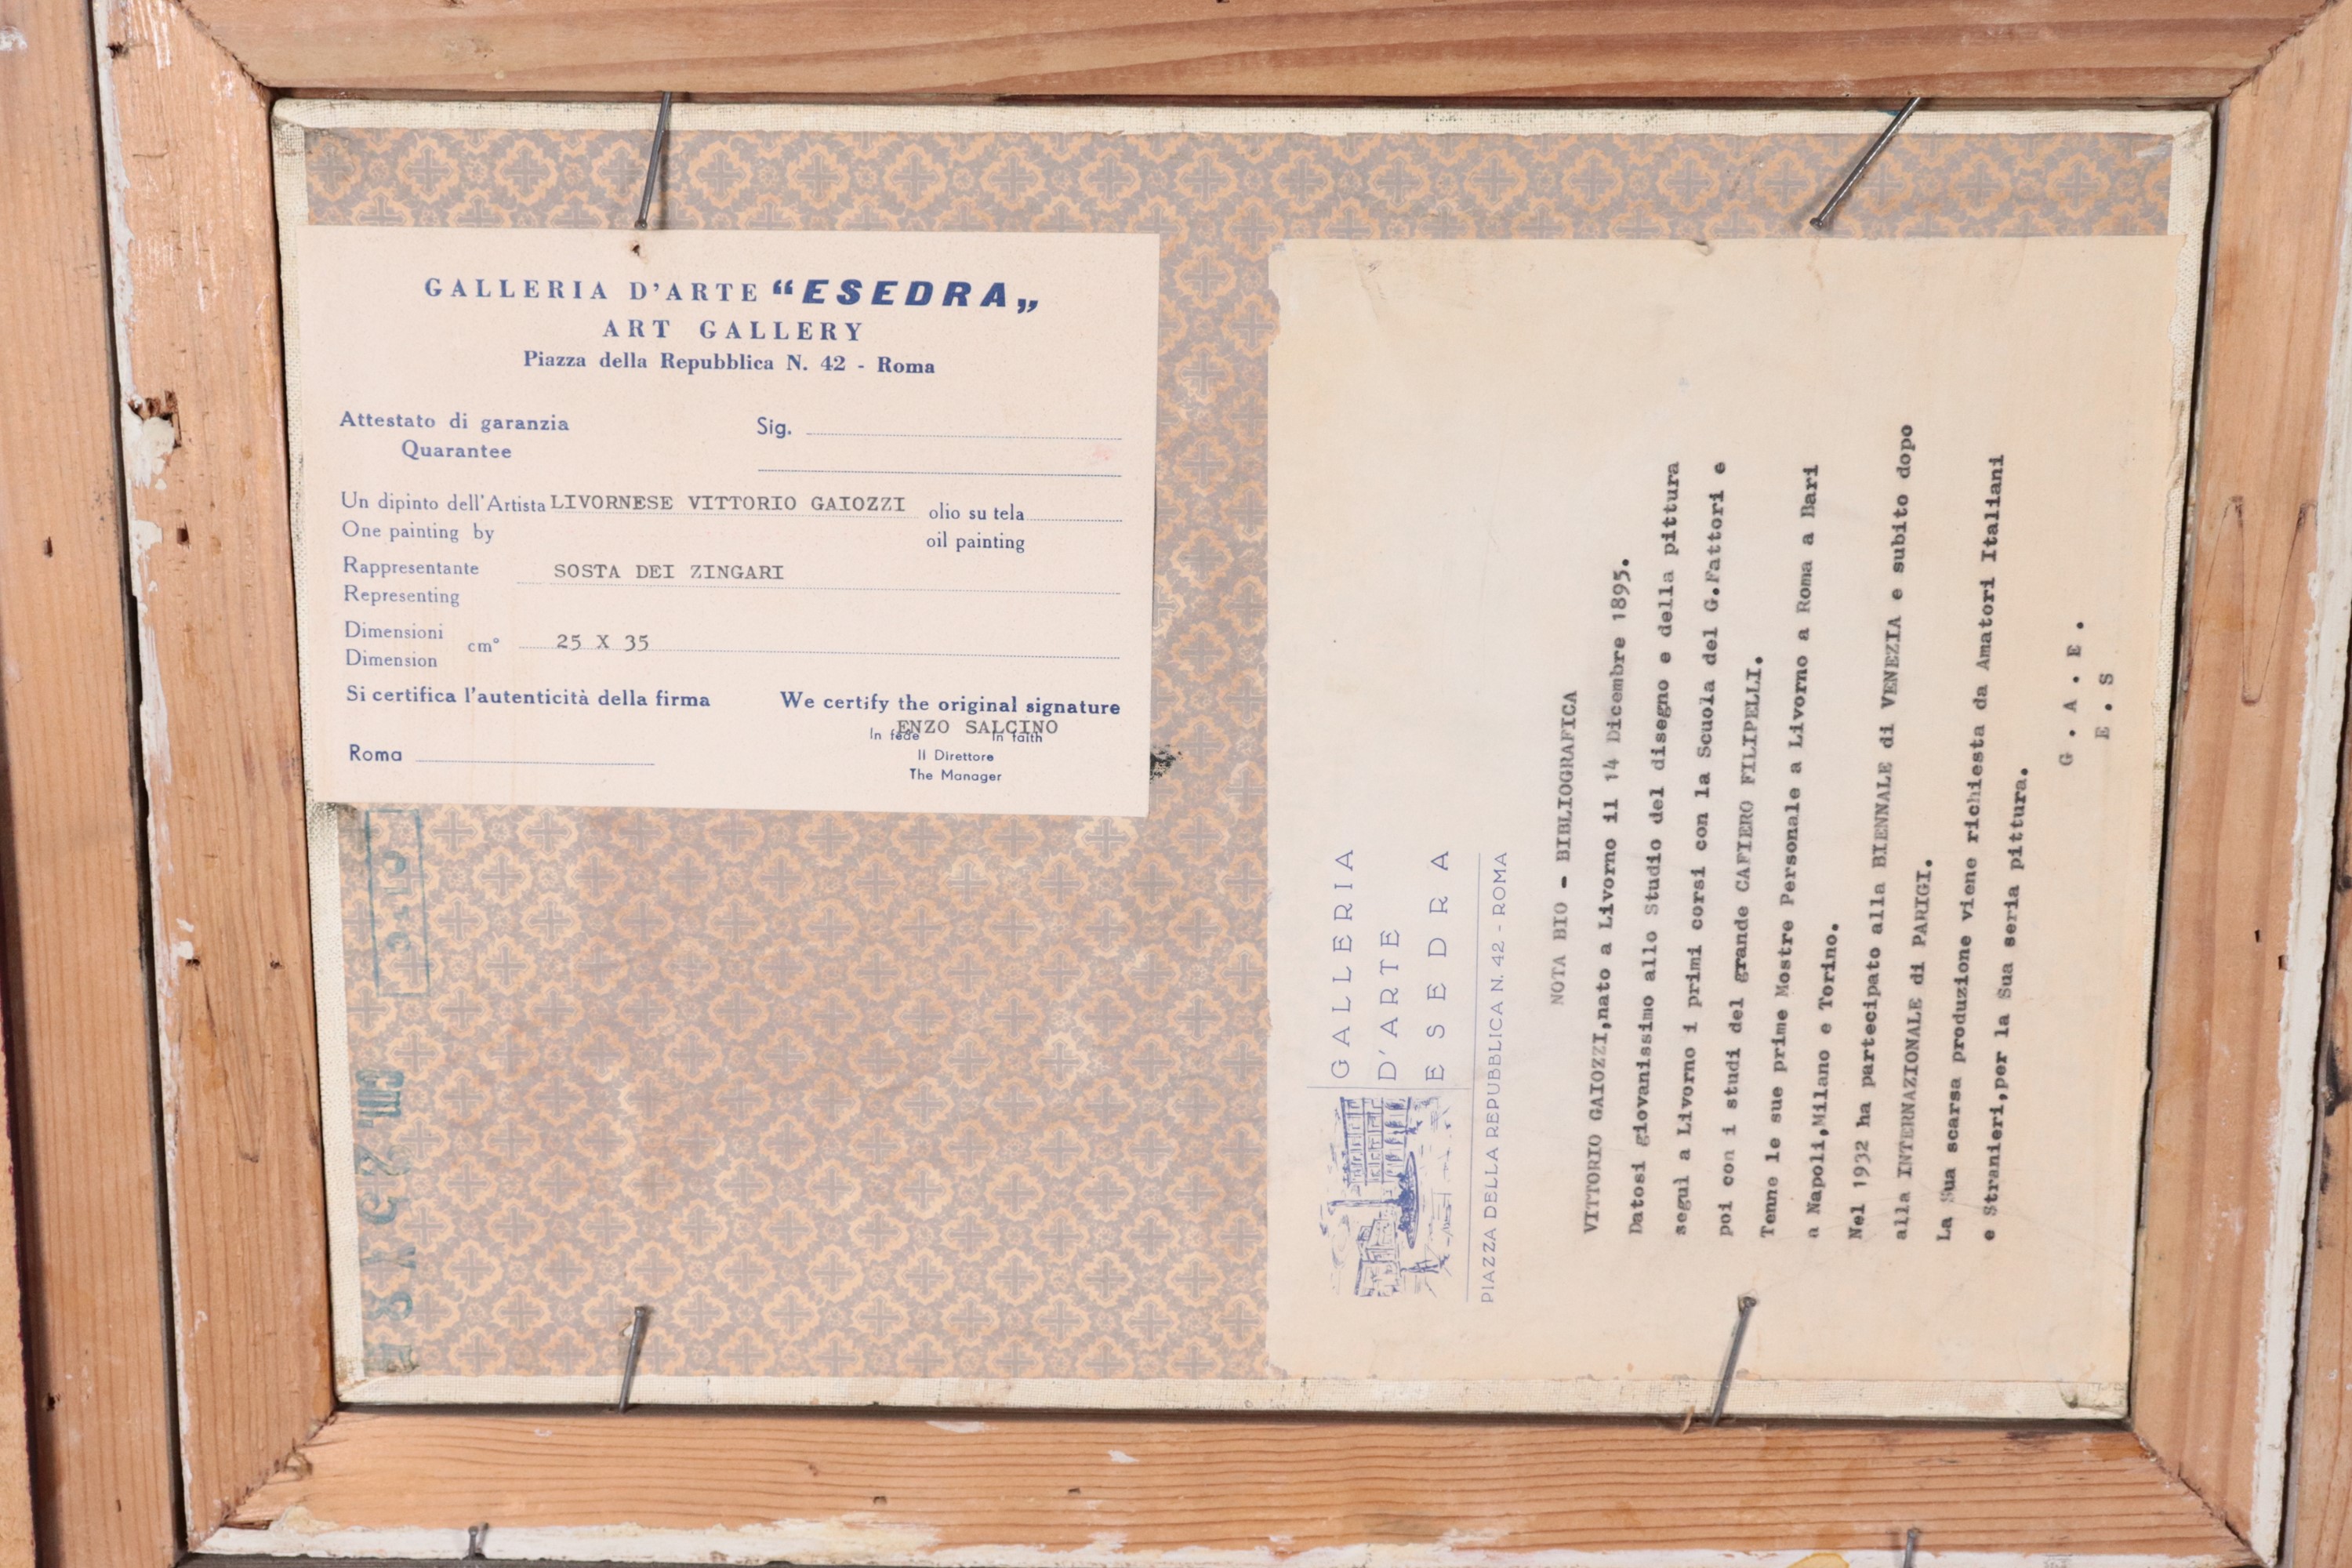 GALLERIA D'ARTE “ESEDRA„
ART GALLERY
Piazza della Repubblica N. 42 - Roma
Attestato di garanzia
Quarantee
Sig.
Un dipinto dell'Artista LIVORNESE VITTORIO GAIOZZI olio su tela
One painting by oil painting
Rappresentante SOSTA DEI ZINGARI
Representing
Dimensioni cm° 25 X 35
Dimension
Si certifica l'autenticità della firma We certify the original signature
ENZO SALCINO
In fede In faith
Roma
Il Direttore
The Manager
GALLERIA
D'ARTE
ESEDRA
PIAZZA DELLA REPUBBLICA N. 42 - ROMA
NOTA BIO - BIBLIOGRAFICA
VITTORIO GAIOZZI,nato a Livorno il 14 Dicembre 1895.
Datosi giovanissimo allo Studio del disegno e della pittura
seguì a Livorno i primi corsi con la Scuola del G.Fattori e
poi con i studi del grande CAFIERO FILIPELLI.
Tenne le sue prime Mostre Personale a Livorno a Roma a Bari
a Napoli,Milano e Torino.
Nel 1932 ha partecipato alla BIENNALE di VENEZIA e subito dopo
alla INTERNAZIONALE di PARIGI.
La Sua scarsa produzione viene richiesta da Amatori Italiani
e Stranieri,per la Sua seria pittura.
G.A.E.
E.S